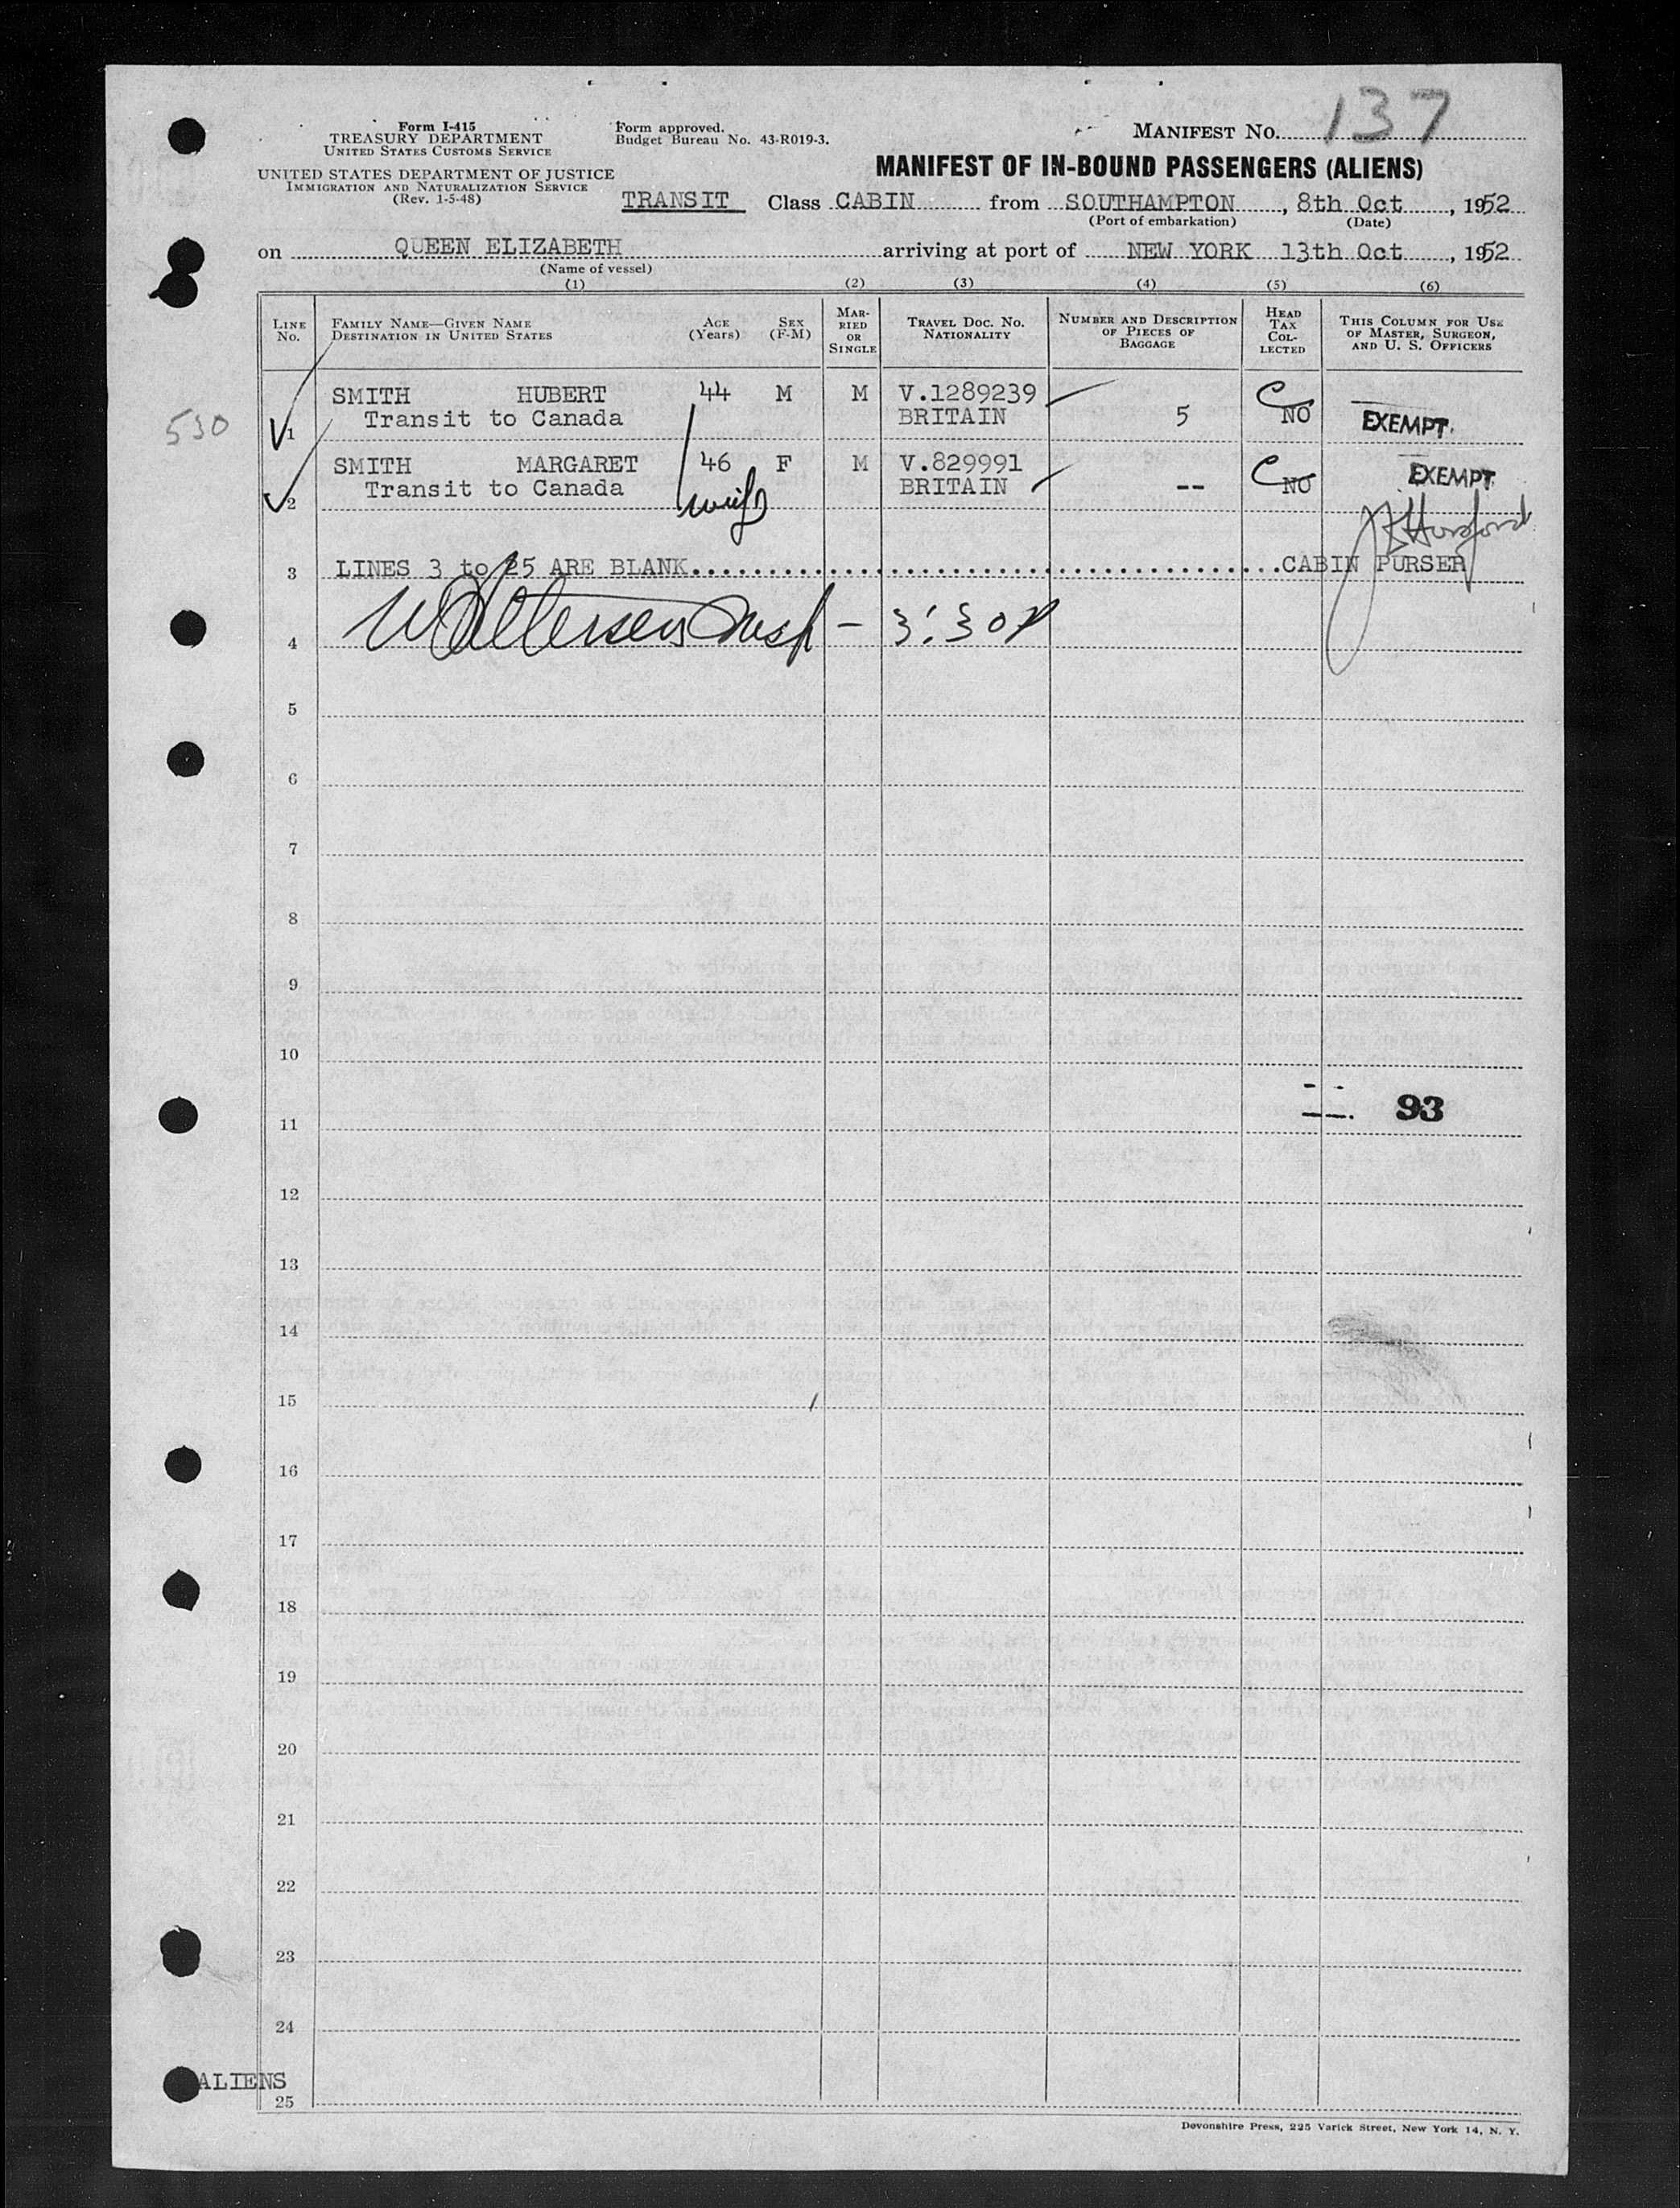 Form I-415
TREASURY DEPARTMENT
UNITED STATES CUSTOMS SERVICE
UNITED STATES DEPARTMENT OF JUSTICE
IMMIGRATION AND NATURALIZATION SERVICE
(Rev. 1-5-48)
Form approved.
Budget Bureau No. 43-R019-3.
MANIFEST No. 137
MANIFEST OF IN-BOUND PASSENGERS (ALIENS)
TRANSIT Class CABIN from SOUTHAMPTON, 8th Oct, 1952
(Port of embarkation) (Date)
on QUEEN ELIZABETH arriving at port of NEW YORK 13th Oct, 1952
(Name of vessel)
(1) (2) (3) (4) (5) (6)
LINE No. FAMILY NAME—GIVEN NAME DESTINATION IN UNITED STATES AGE (Years) SEX (F-M) MARRIED OR SINGLE TRAVEL DOC. NO. NATIONALITY NUMBER AND DESCRIPTION OF PIECES OF BAGGAGE HEAD TAX COLLECTED THIS COLUMN FOR USE OF MASTER, SURGEON, AND U. S. OFFICERS
SMITH HUBERT 44 M M V.1289239
530 1 Transit to Canada BRITAIN 5 NO EXEMPT.
SMITH MARGARET 46 F M V.829991
2 Transit to Canada wife BRITAIN -- NO EXEMPT
3 LINES 3 to 25 ARE BLANK........................................CABIN PURSER
4 Insp — 3:30P
5
6
7
8
9
10
11 93
12
13
14
15
16
17
18
19
20
21
22
23
24
ALIENS
25
Devonshire Press, 225 Varick Street, New York 14, N. Y.